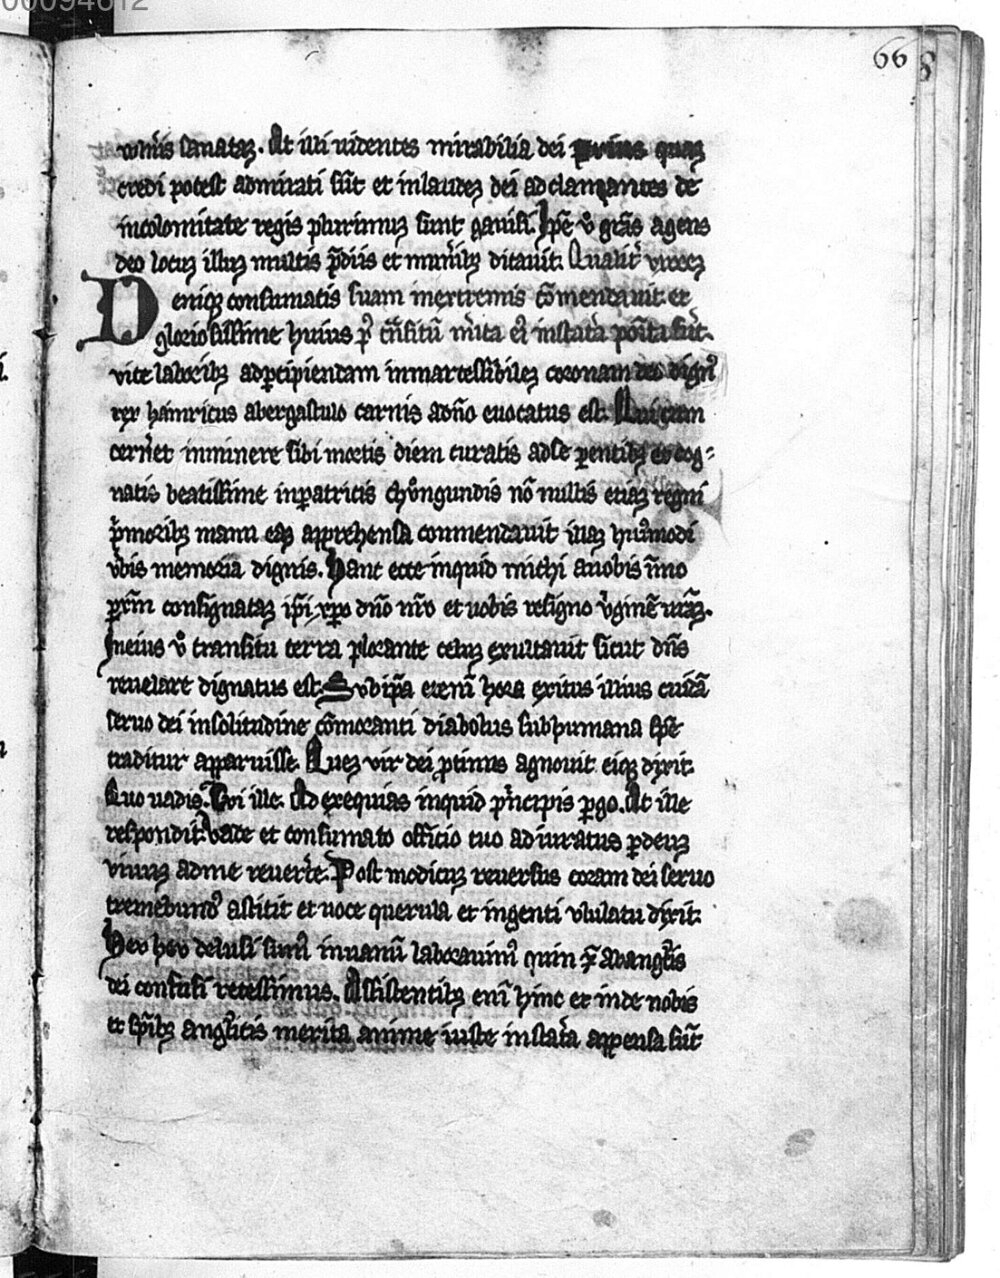 00094612
66 8
uolneris sanatam. At illi uidentes mirabilia dei quam
credi potest admirati sunt et in laudem dei adclamantes de
incolomitate regis plurimum sunt gauisi. Ipse vero gratias agens
deo locum illum multis prediis et muneribus ditauit. Qualiter
Denique consumatis suam in extremis commendauit et
gloriosissime huius post transitum merita eius in statera ponderata sunt.
vite laboribus ad percipiendam inmarcessibilem coronam deo dignus
rex hainricus ab ergastulo carnis a domino euocatus est. Qui cum
cerneret imminere sibi mortis diem curatis ad se parentibus et cog-
natis beatissime inperatricis chunegundis non nullis etiam regni
primoribus manu eam apprehensa commendauit illam huiusmodi
verbis memoria dignis. Hanc ecce inquid michi a uobis immo
per christum consignatam ipsi christo domino nostro et uobis resigno virginem uestram.
In eius vero transitu terra plorante celum exultauit sicut dominus
reuelare dignatus est. Sub ipsa etenim hora exitus illius cuidam
seruo dei in solitudine commoranti diabolus sub humana specie
traditur apparuisse. Quem vir dei protinus agnouit eique dixit.
Quo uadis. Cui ille. Ad exequias inquid principis pergo. At ille
respondit. vade et consumato officio tuo adiuratus per deum
viuum ad me reuertere. Post modicum reuersus coram dei seruo
tremebundus astitit et uoce querula et ingenti vlulatu dixit.
Heu heu delusi sumus in uanum laborauimus quin ab angelis
dei confusi recessimus. Assistentibus enim hinc et inde nobis
et spiritibus angelicis merita anime iuste in statera appensa sunt